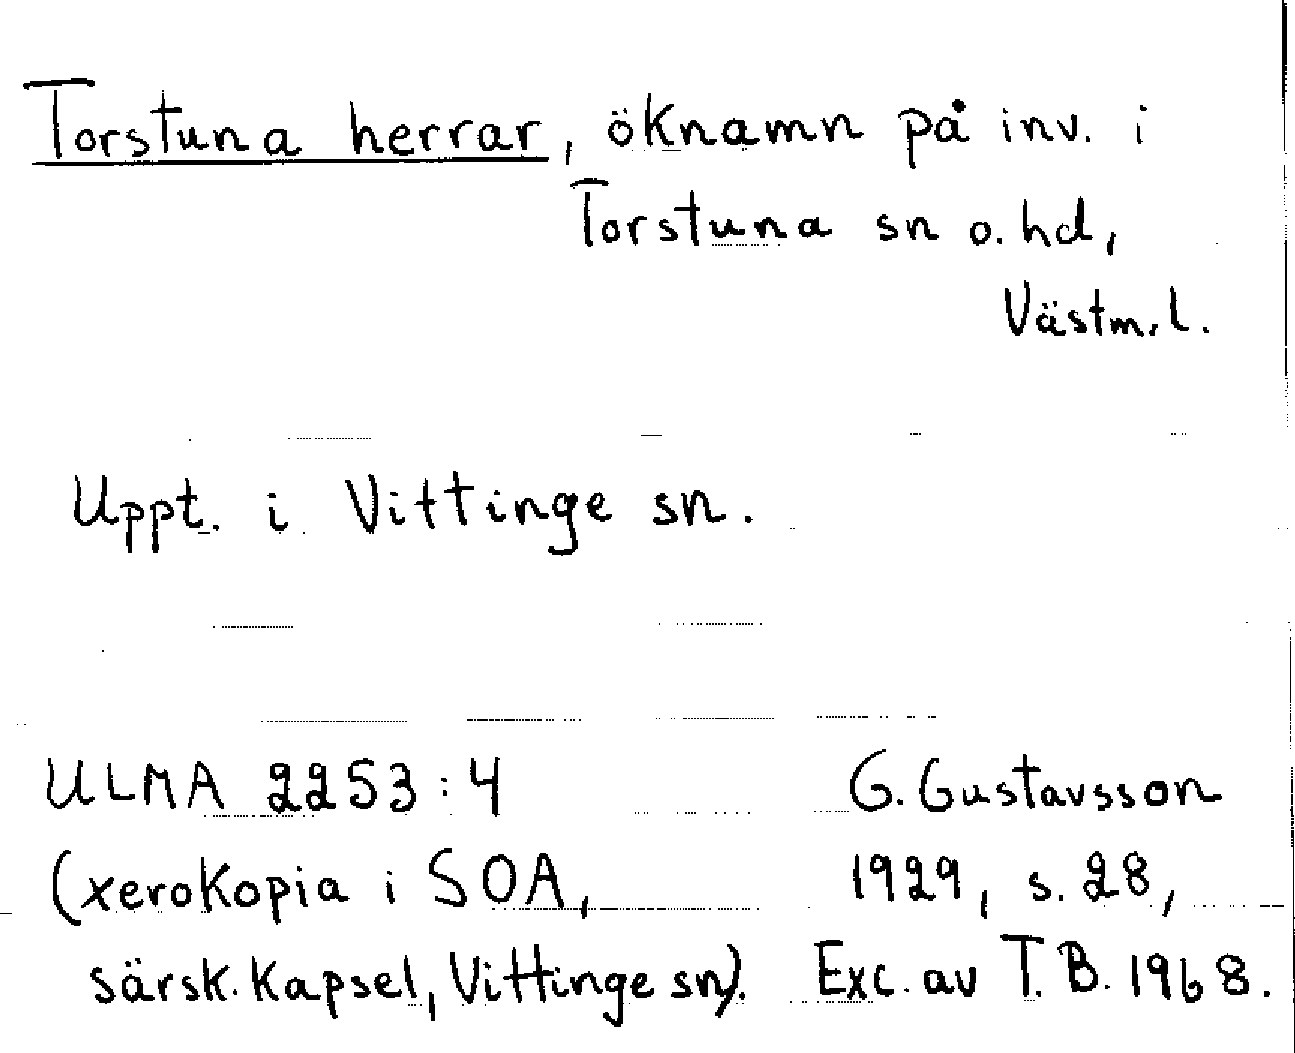 Torstuna herrar, öknamn på inv. i
Torstuna sn o. hd,
Västm. l.
Uppt. i Vittinge sn.
ULMA 2253:4
(xerokopia i SOA,
särsk. kapsel, Vittinge sn).
G. Gustavsson
1929, s. 28,
Exc. av T.B. 1968.